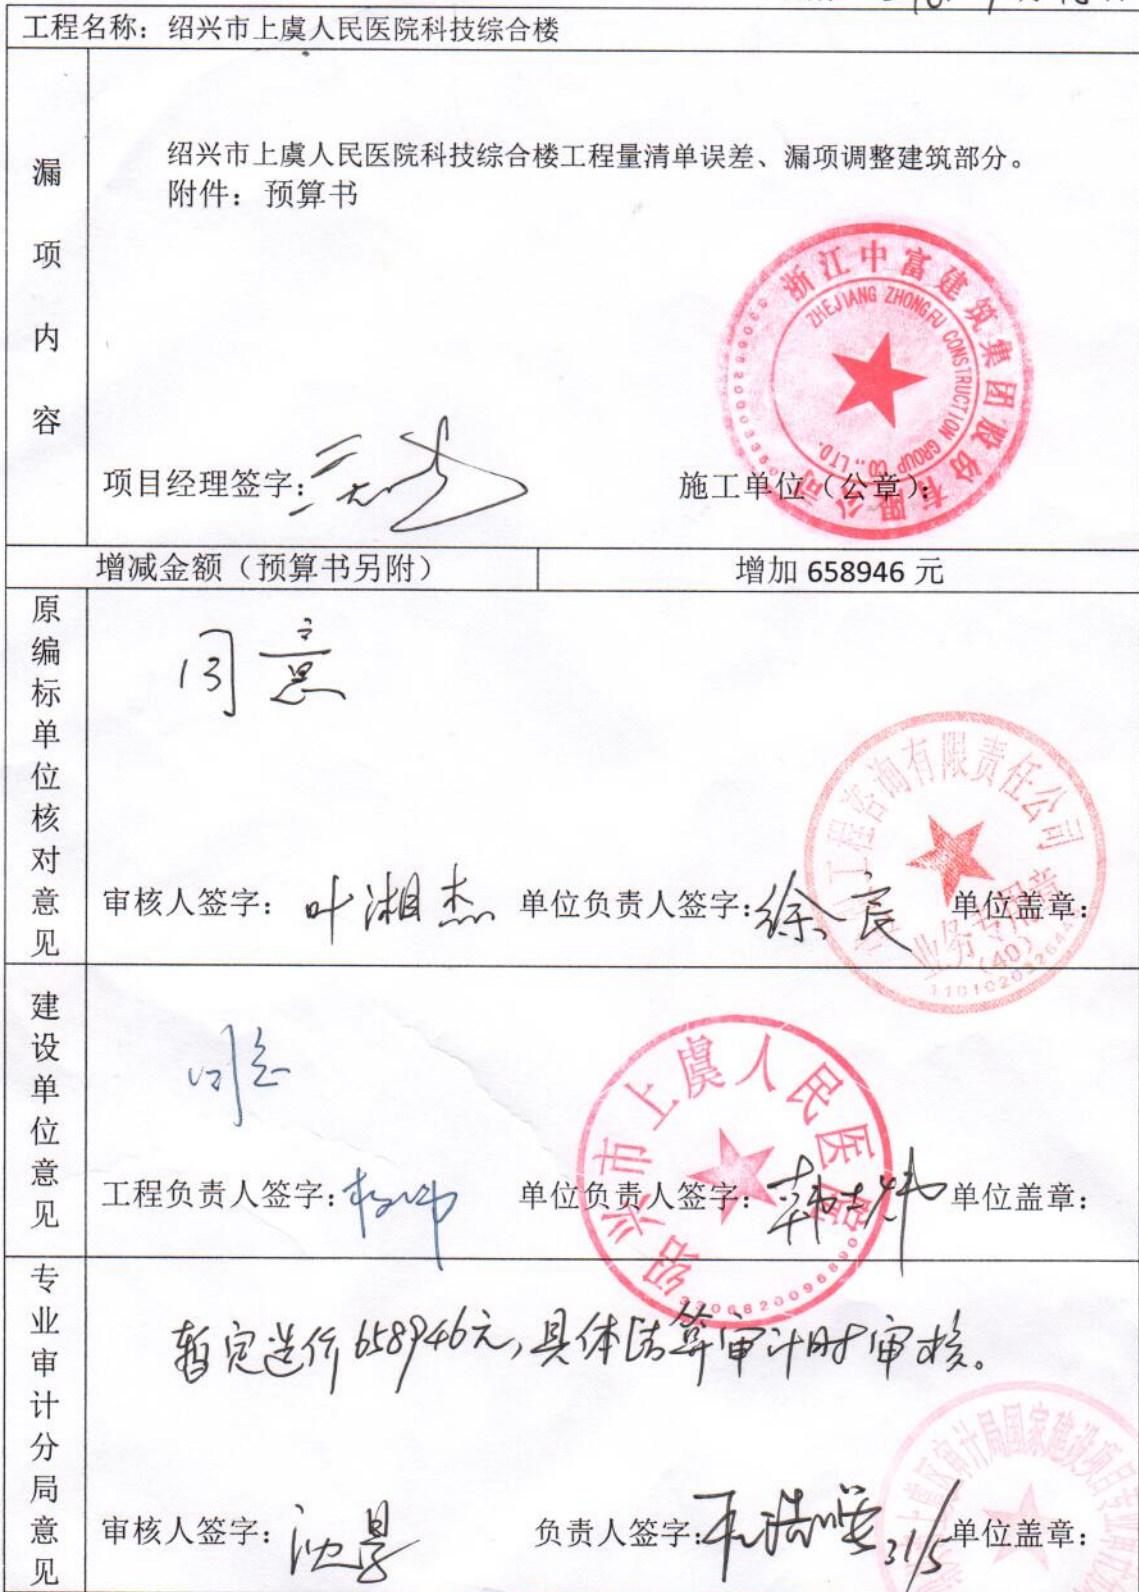 工程名称：绍兴市上虞人民医院科技综合楼
漏项内容
绍兴市上虞人民医院科技综合楼工程量清单误差、漏项调整建筑部分。
附件：预算书
浙江中富建筑集团股份有限公司
ZHEJIANG ZHONGFU CONSTRUCTION GROUP CO., LTD.
项目经理签字：
施工单位（公章）：
增减金额（预算书另附）
增加 658946 元
原编标单位核对意见
同意
工程咨询有限责任公司
业务专用章
(40)
审核人签字：叶湘杰 单位负责人签字：徐良 单位盖章：
建设单位意见
同意
绍兴市上虞人民医院
工程负责人签字： 单位负责人签字： 单位盖章：
专业审计分局意见
暂定造价658946元，具体结算审计时审核。
上虞区审计局国家建设项目专业审计
审核人签字：沈 负责人签字： 31/5 单位盖章：